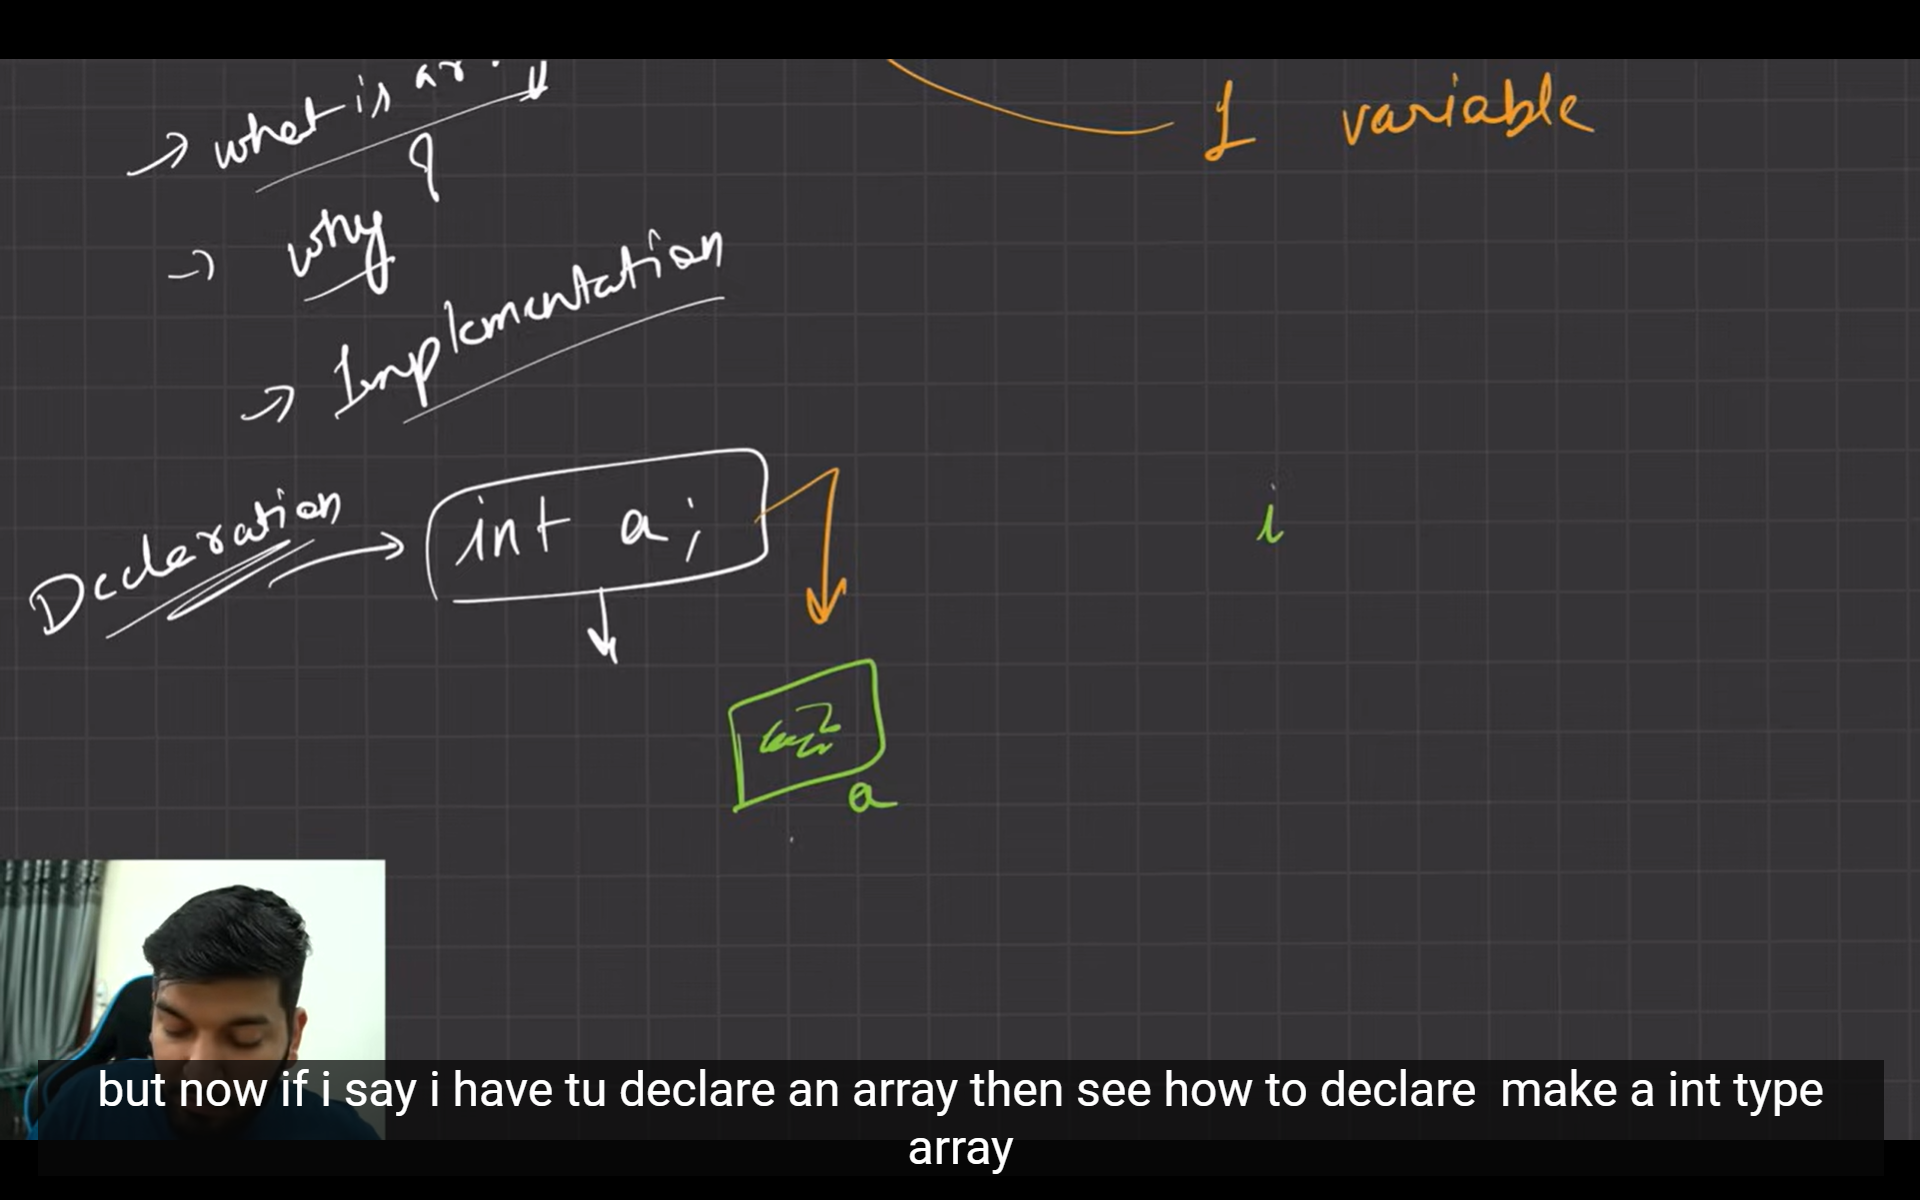 → what is ar
1 variable
?
→ why
→ Implementation
Decleration → int a;
i
a
but now if i say i have tu declare an array then see how to declare  make a int type
array